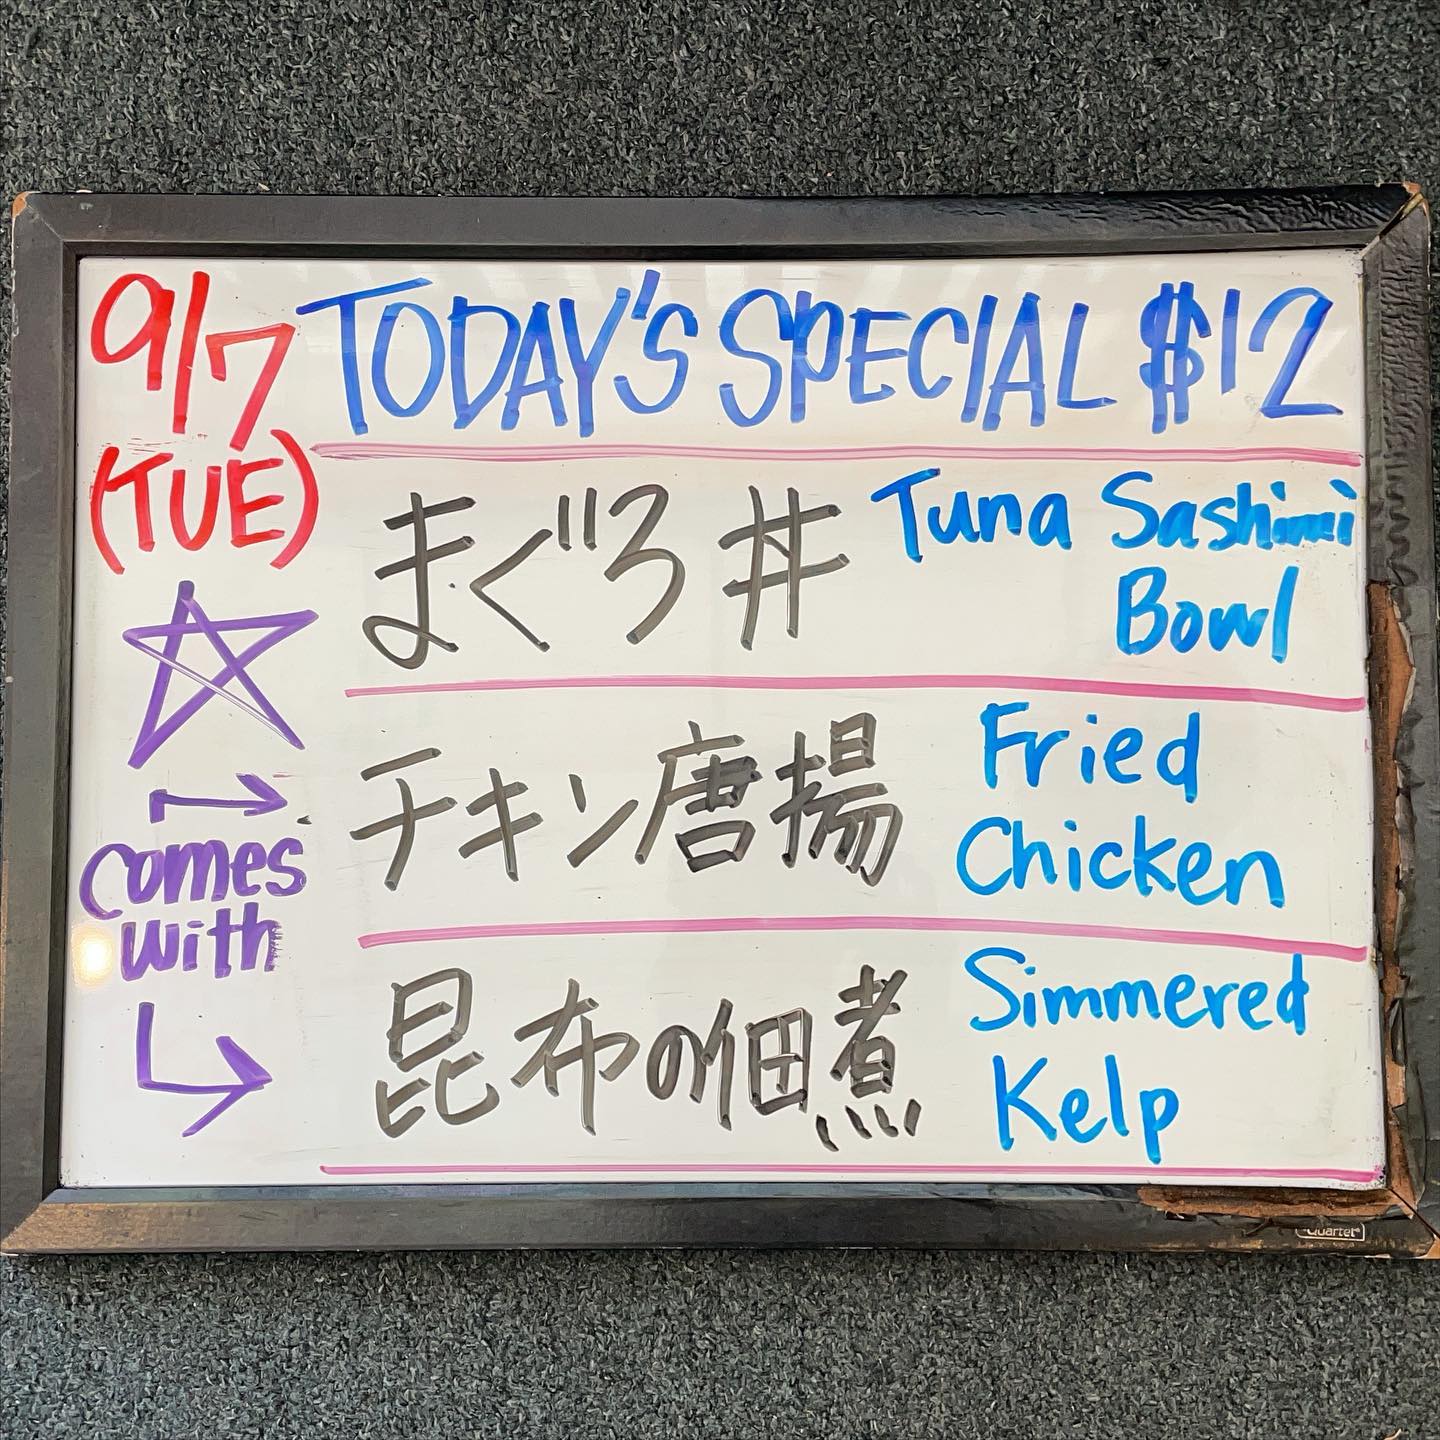 9/7
(TUE)
TODAY'S SPECIAL $12
まぐろ井 Tuna Sashimi
Bowl
チキン唐揚 Fried
Chicken
comes
with
昆布の佃煮 Simmered
Kelp
Quartet